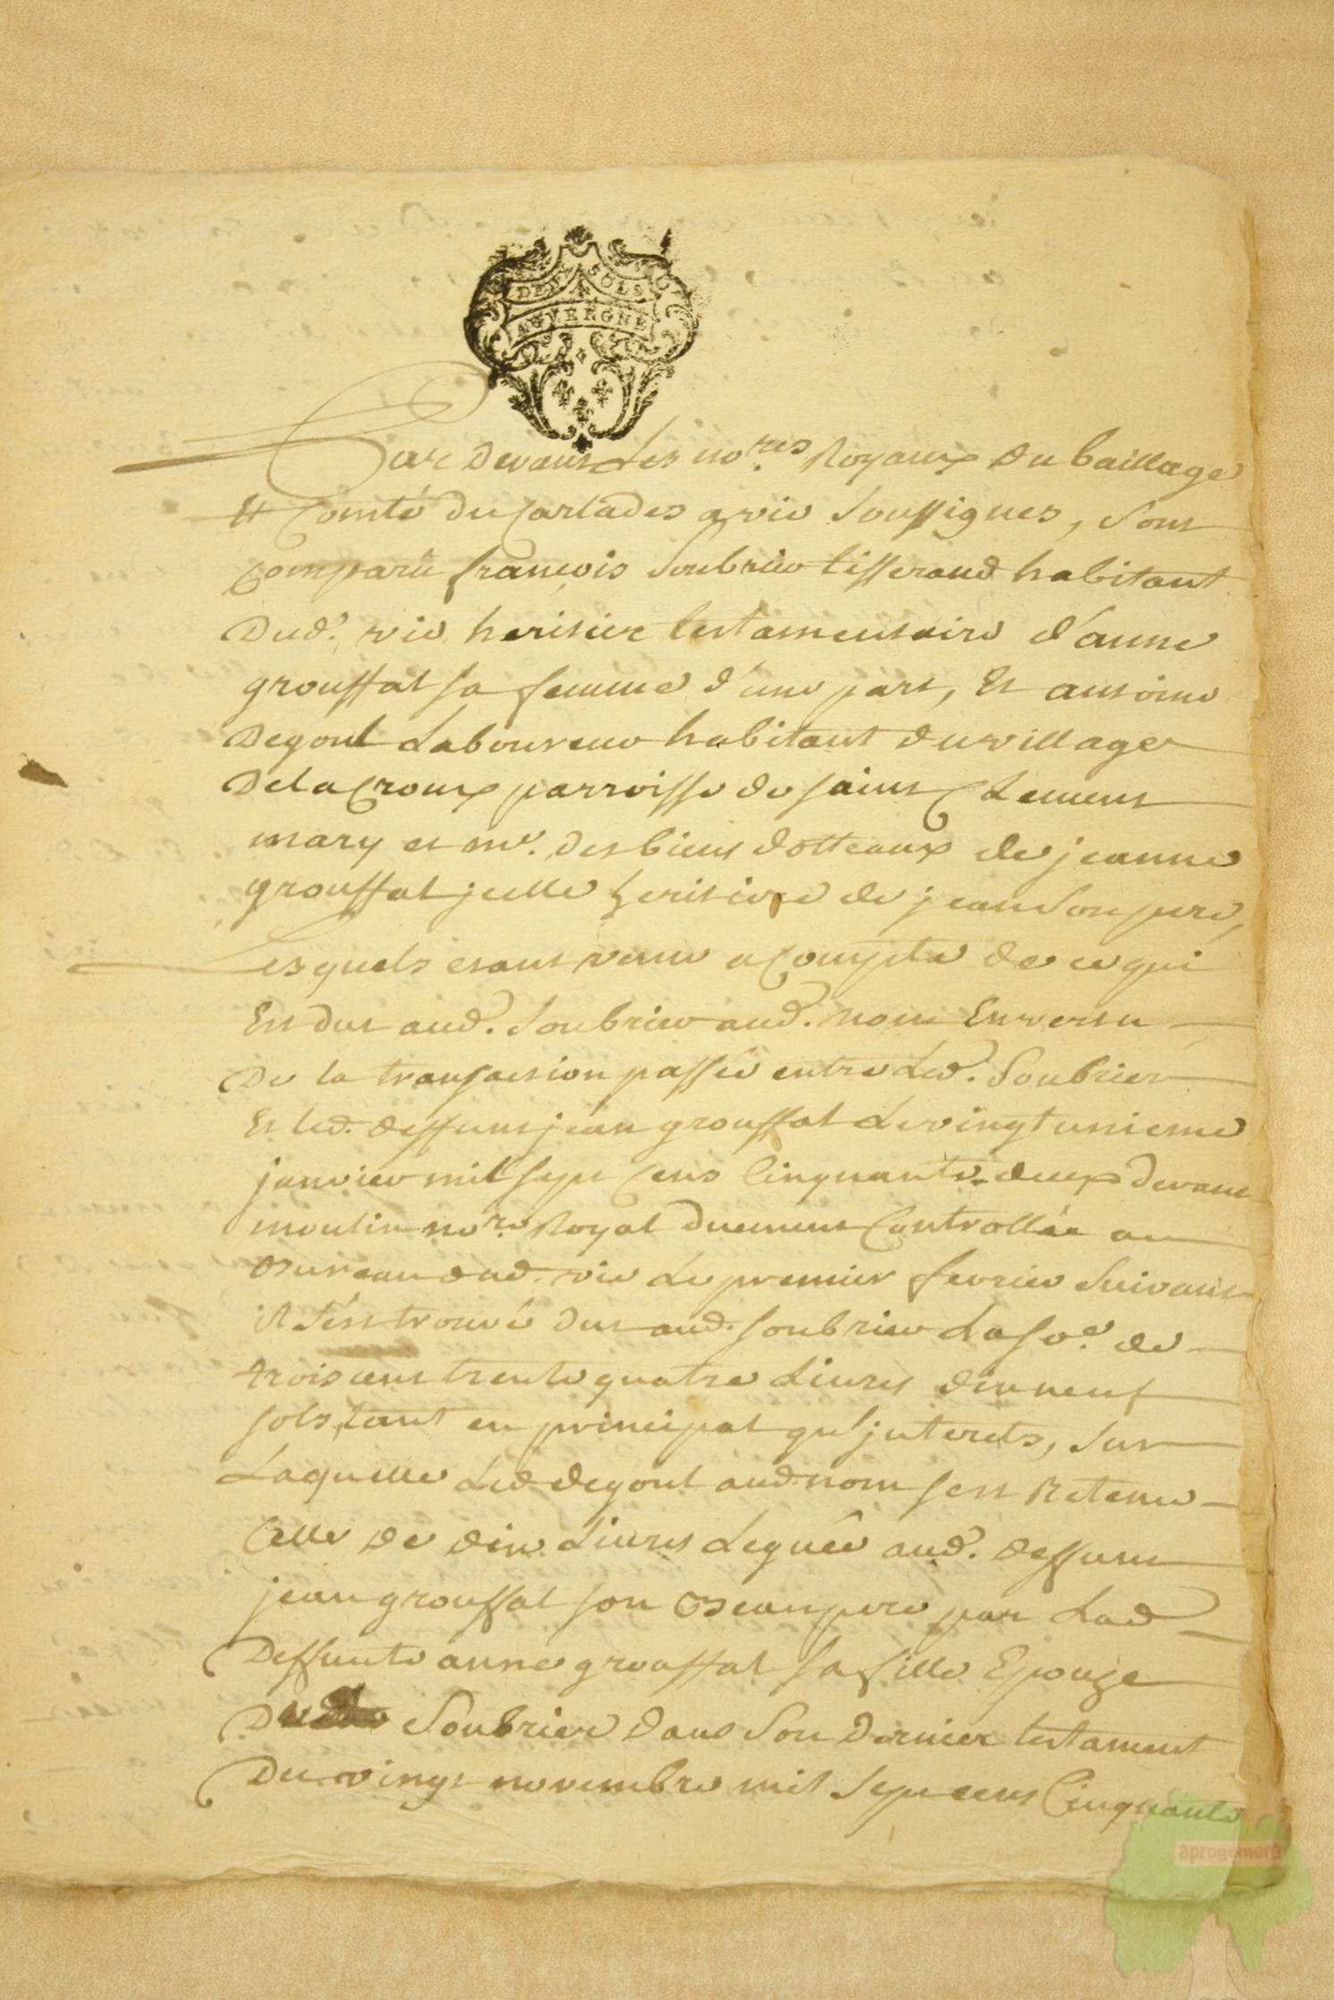 DEUX SOLS
AUVERGNE
Par devant Les no.res Royaux du baillage
Et Comté du Carlades a vic Soussignes, Sont
Comparû françois Soubrier tisserand habitant
Dud. vic heritier testamentaire d'anne
grouffat sa femme d'une part, Et antoine
Degoul Laboureur habitant du village
De la Croux parroisse de saint Clement
mary et m.e des biens dotteaux de jeanne
grouffal jcelle heritiere de jean Son pere,
Lesquels etant venu a Compte de ce qui
Est dut aud. Soubrier aud. nom En vertu
De la transaction passée entre Led. Soubrier
Et led. deffunt jean grouffal Le vingt unieme
janvier mil sept Cens Cinquante deux devant
moulin no.re Royal duement Controllée au
Bureau dud. vic Le premier fevrier Suivant
il s'est trouvé dut aud. soubrier La so.e de
trois cent trente quatre Livres dix neuf
sols, tant en principal qu'jnterets, Sur
Laquelle Led degoul aud nom sest Retenu
Celle de dix Livres Leguée aud. deffunt
jean grouffal son Beaupere par Lad
Deffunte anne grouffal sa fille Epouze
Soubrier dans Son dernier testament
Du vingt novembre mil Sept cens Cinquante
aprogemere